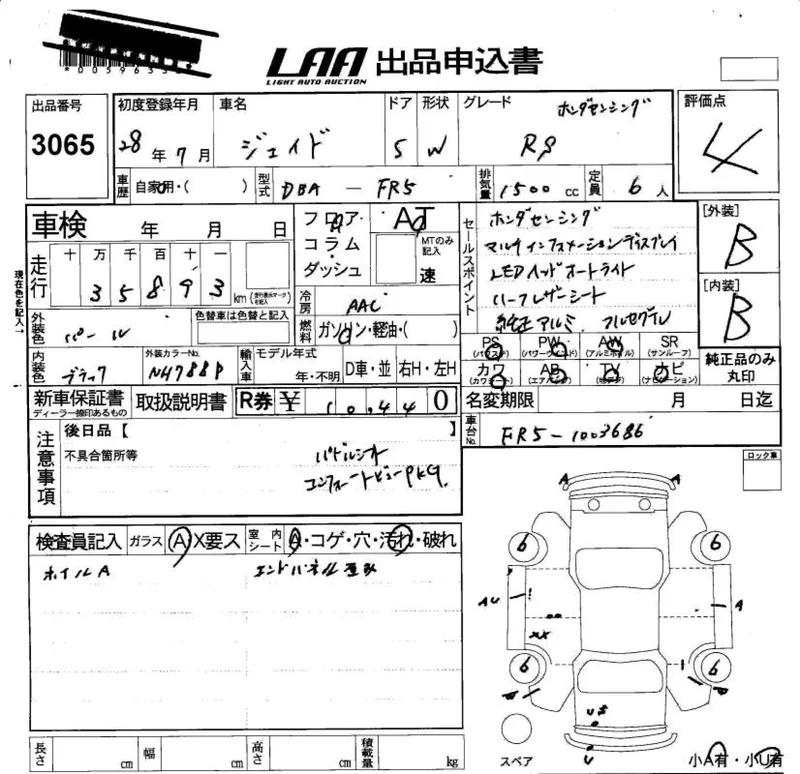 LAA 出品申込書
LIGHT AUTO AUCTION
出品番号 初度登録年月 車名 ドア 形状 グレード ホンダセンシング 評価点
3065 28年7月 ジェイド 5 W RS 4
車歴 自家用・( ) 型式 DBA － FR5 排気量 1500 cc 定員 6人
車検 年 月 日 フロア コラム・ダッシュ AT MTのみ記入 速
セールスポイント ホンダセンシング
マルチインフォメーションディスプレイ
LEDヘッドオートライト
ハーフレザーシート
純正アルミ フルセグTV
[外装] B
[内装] B
現在色を記入→
走行 十 万 千 百 十 一
35893 km (走行表示マークを記入)
冷房 AAC
外装色 パール 色替車は色替と記入 燃料 ガソリン・軽油・( )
内装色 ブラック 外装カラーNo. NH788P 輸入車 モデル年式 年・不明 D車・並 右H・左H
PS (パワステ) PW (パワーウィンド) AW (アルミホイル) SR (サンルーフ)
カワ (カワシート) AB (エアバッグ) TV ナビ (ナビゲーション)
純正品のみ丸印
新車保証書 ディーラー捺印あるもの 取扱説明書 R券 ¥ 10,440 名変期限 月 日迄
車台No. FR5-1003686
注意事項 後日品【 】
不具合箇所等 パドルシフト
コンフォートビューPKG.
ロック車
検査員記入 ガラス A X要ス 室内シート A・コゲ・穴・汚れ・破れ
ホイルA
A A
6 6
AU A
XX
6 6
U
U
スペア
小A有・小U有
長さ cm 幅 cm 高さ cm 積載量 kg